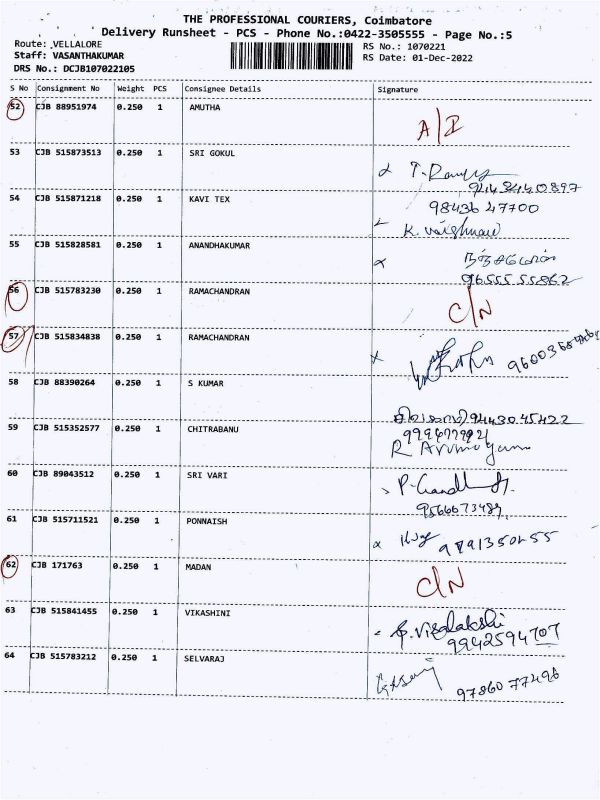 THE PROFESSIONAL COURIERS, Coimbatore
Delivery Runsheet - PCS - Phone No.:0422-3505555 - Page No.:5
Route: VELLALORE
RS No.: 1070221
Staff: VASANTHAKUMAR
RS Date: 01-Dec-2022
DRS No.: DCJB107022105
S No Consignment No Weight PCS Consignee Details Signature
52 CJB 88951974 0.250 1 AMUTHA
A/I
53 CJB 515873513 0.250 1 SRI GOKUL
54 CJB 515871218 0.250 1 KAVI TEX
98436 47700
K. vaishnavi
55 CJB 515828581 0.250 1 ANANDHAKUMAR
96555 55862
56 CJB 515783230 0.250 1 RAMACHANDRAN
C/N
57 CJB 515834838 0.250 1 RAMACHANDRAN
58 CJB 88390264 0.250 1 S KUMAR
94430 45422
59 CJB 515352577 0.250 1 CHITRABANU
R Arumugam
60 CJB 89043512 0.250 1 SRI VARI
61 CJB 515711521 0.250 1 PONNAISH
62 CJB 171763 0.250 1 MADAN
C/N
63 CJB 515841455 0.250 1 VIKASHINI
9942594707
64 CJB 515783212 0.250 1 SELVARAJ
97860 77496